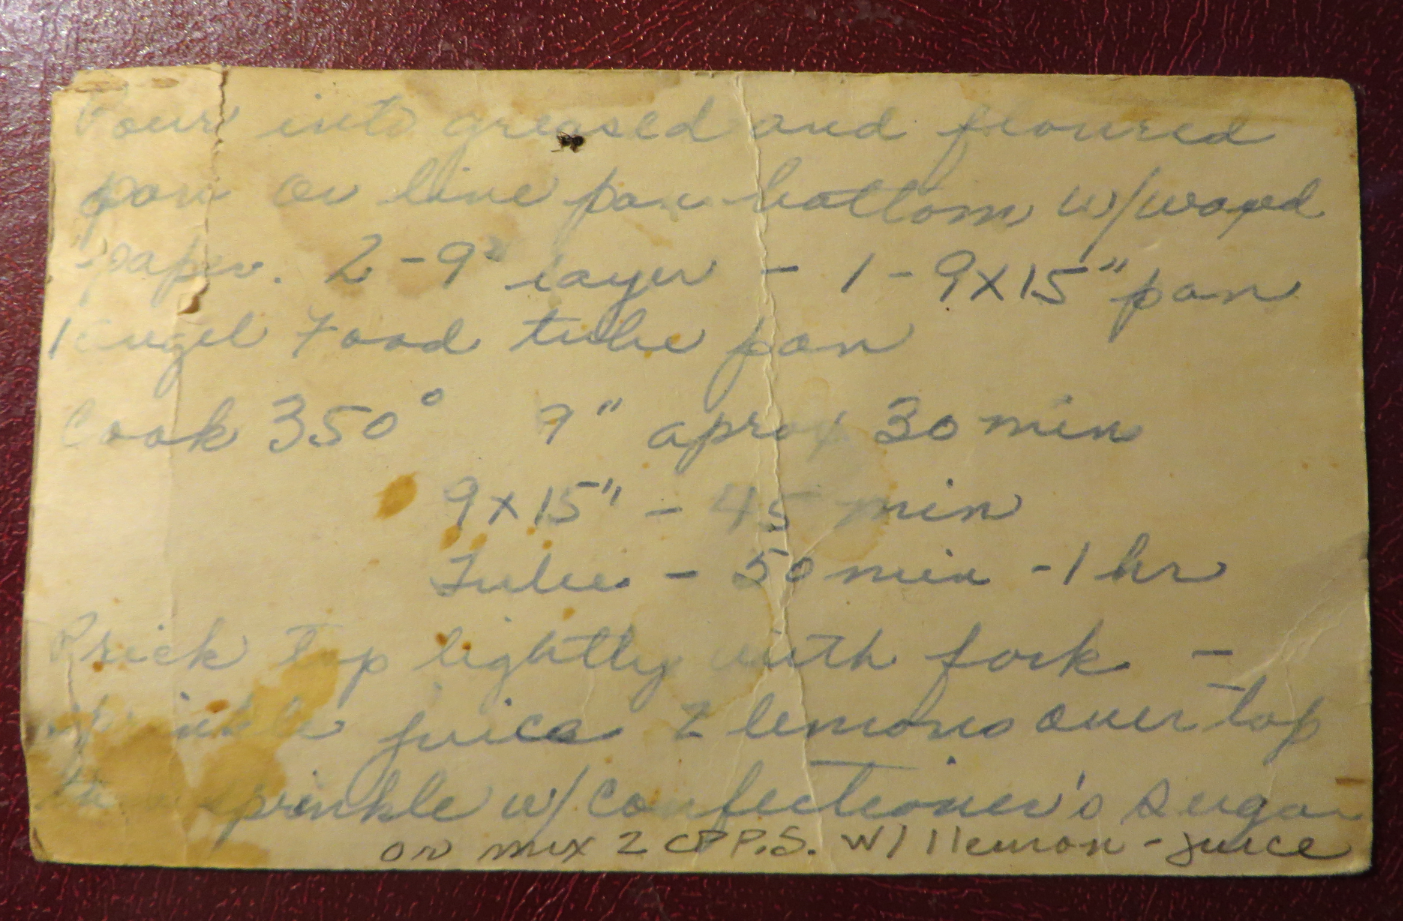 Pour into greased and floured
pan or line pan bottom w/waxed
paper. 2 - 9" layer - 1 - 9x15" pan
1 angel Food tube pan
Cook 350° 9" aprox 30 min
9x15" - 45 min
Tube - 50 min - 1 hr
Prick Top lightly with fork -
sprinkle juice 2 lemons over top
then sprinkle w/ Confectioner's Sugar
or mix 2 CP P.S. W/ 1 lemon - juice